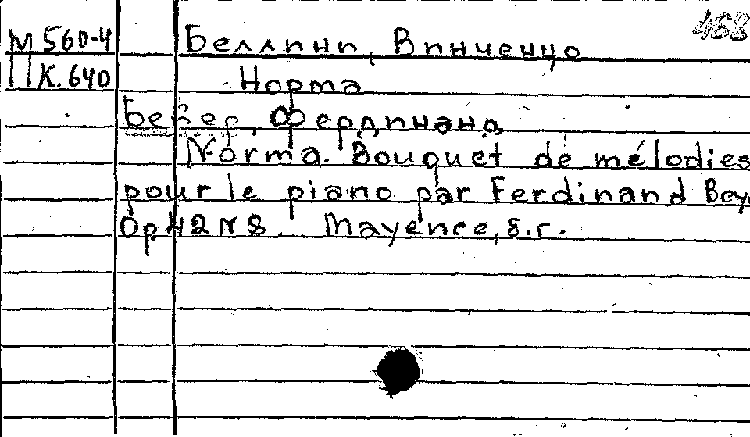 468
М 560-4 Беллини, Винченцо
К. 640 Норма
Бейер, Фердинанд
Norma. Bouquet de mélodies
pour le piano par Ferdinand Bey
Op 42 N 8 Mayence, s.г.